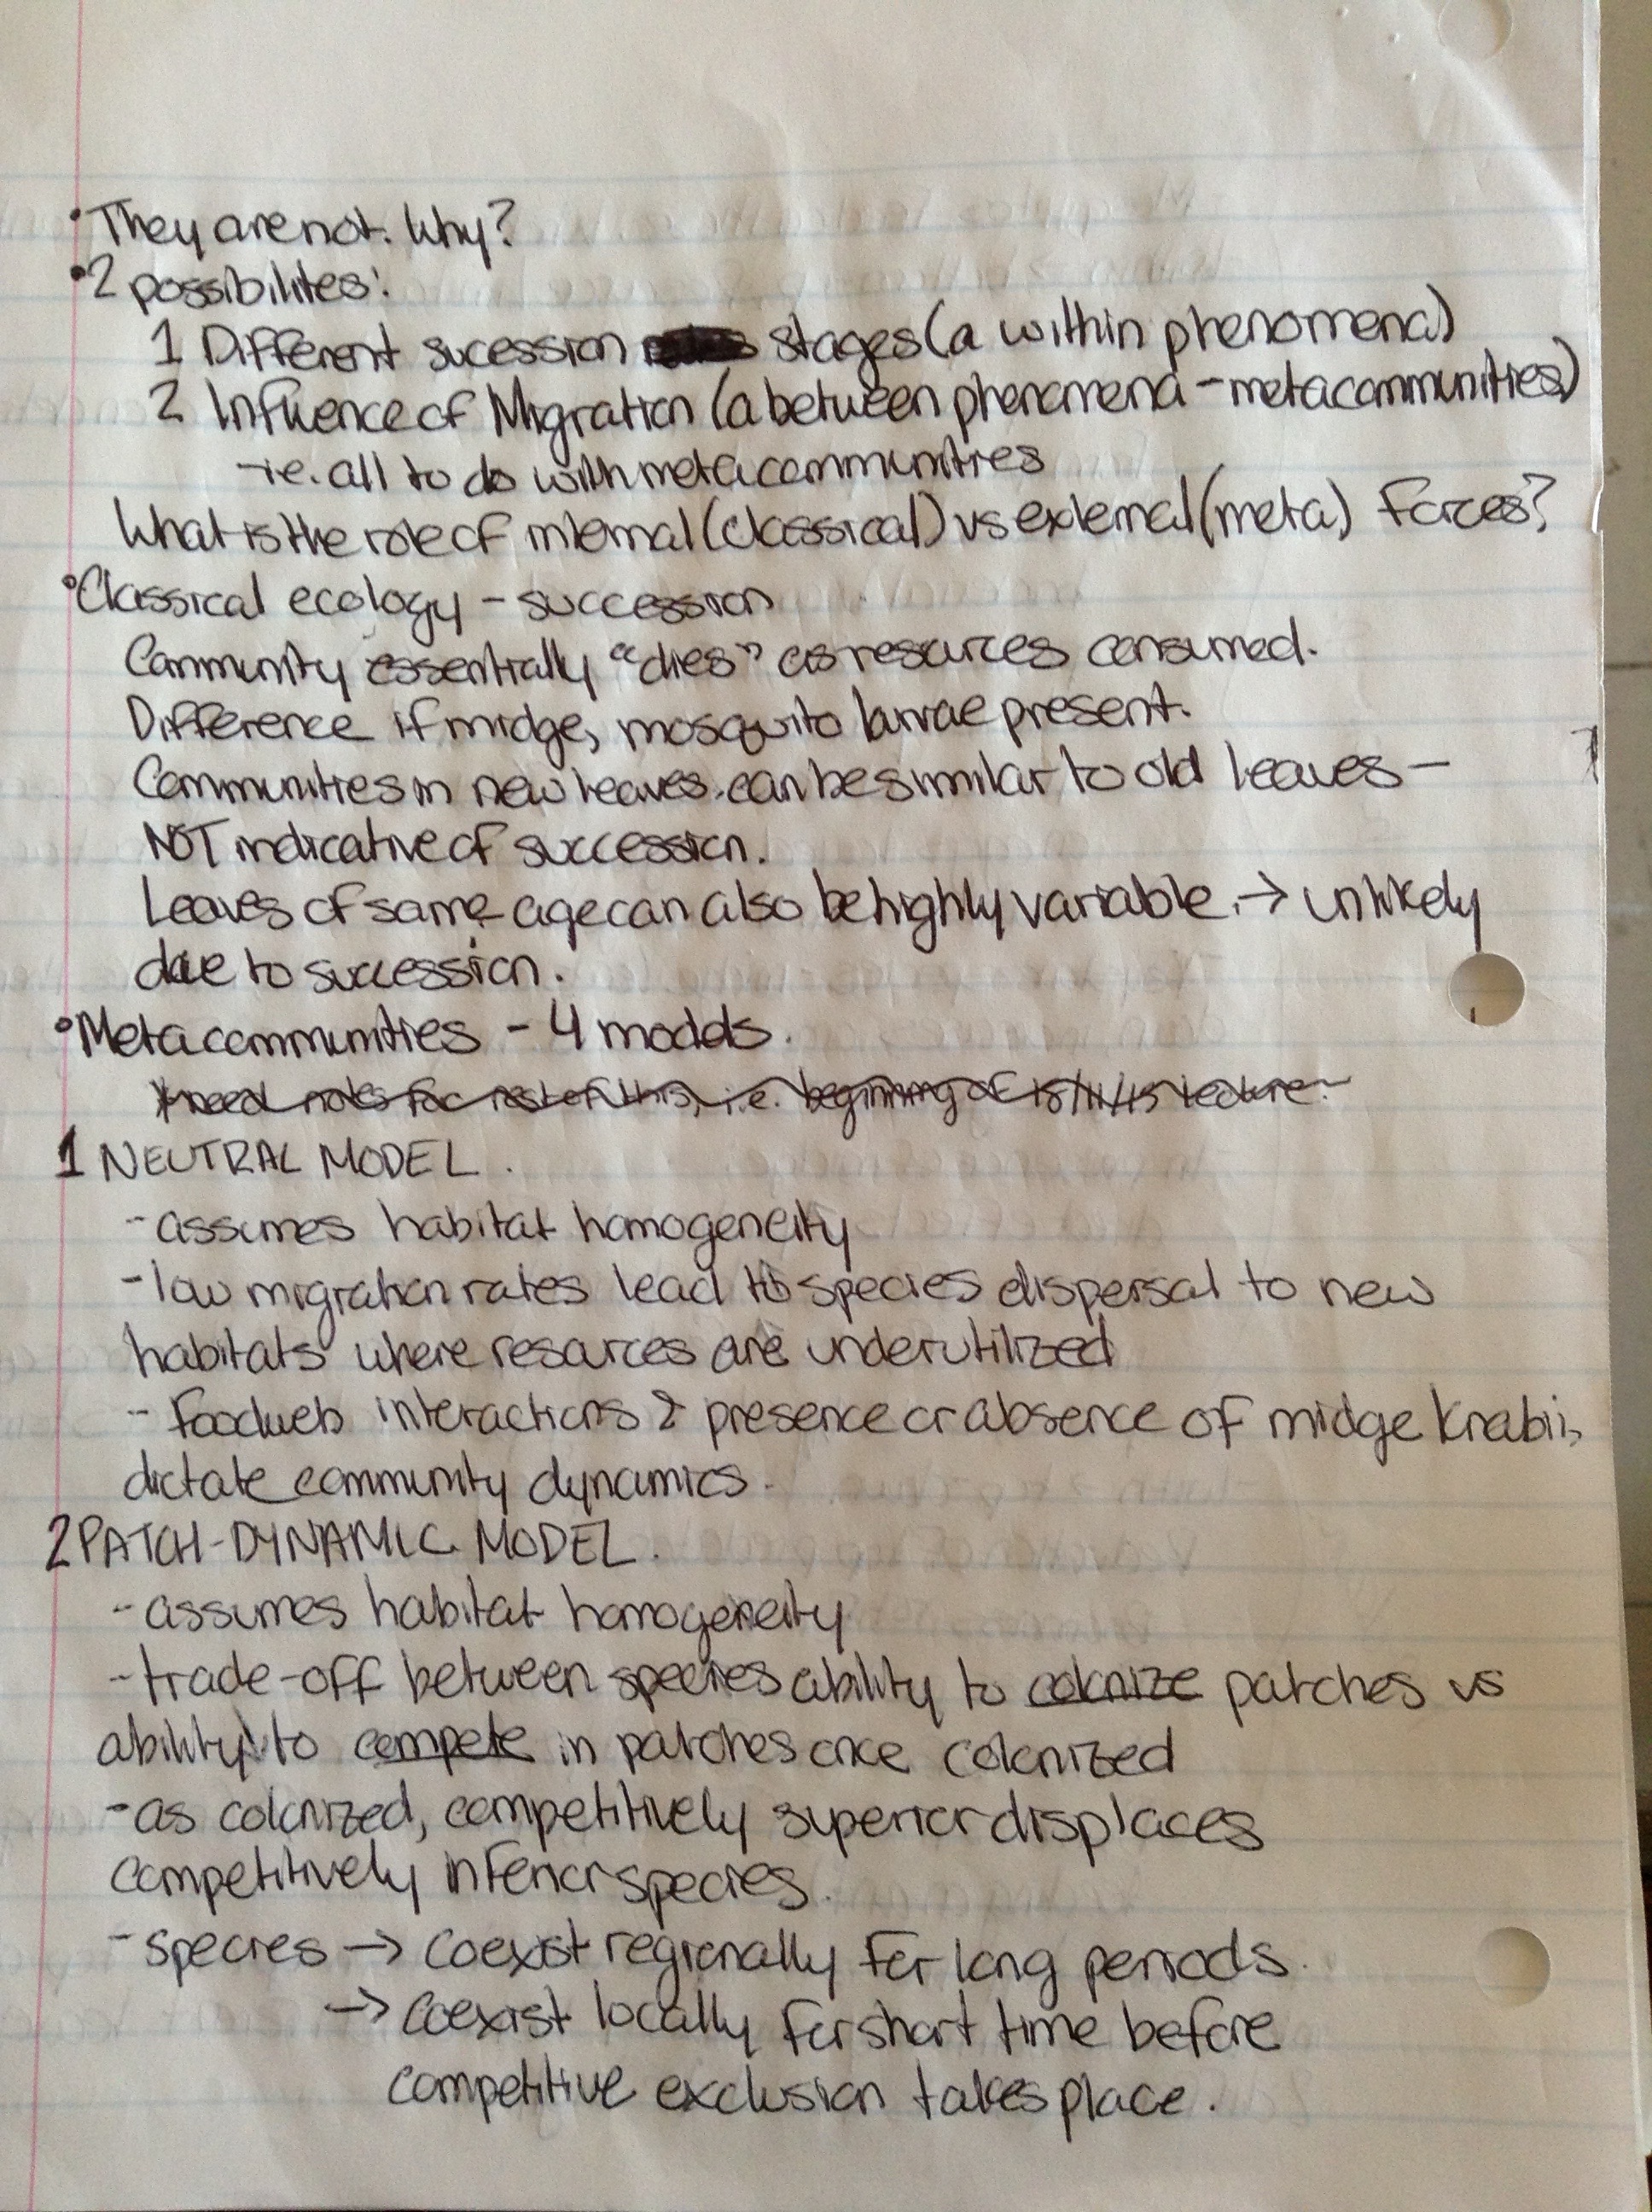 • They are not. Why?
• 2 possibilites:
1 Different sucession stages (a within phenomena)
2 Influence of Migration (a between phenomena - metacommunities)
- ie. all to do with metacommunities
What is the role of internal (classical) vs external (meta) forces?
• Classical ecology - succession
Community essentially "dies" as resources consumed.
Difference if midge, mosquito larvae present.
Communities in new leaves can be similar to old leaves -
NOT indicative of succession.
Leaves of same age can also be highly variable. → unlikely
due to succession.
• Metacommunities - 4 models.
*need notes for rest of this, i.e. beginning of 18/11/15 lecture.
1 NEUTRAL MODEL.
- assumes habitat homogeneity
- low migration rates lead to species dispersal to new
habitats where resources are underutilized
- Foodweb interactions & presence or absence of midge knabii,
dictate community dynamics.
2 PATCH-DYNAMIC MODEL.
- assumes habitat homogeneity
- trade-off between species ability to colonize patches vs
ability to compete in patches once colonized
- as colonized, competitively superior displaces
competitively inferior species.
- species → coexist regionally for long periods.
→ coexist locally for short time before
competitive exclusion takes place.